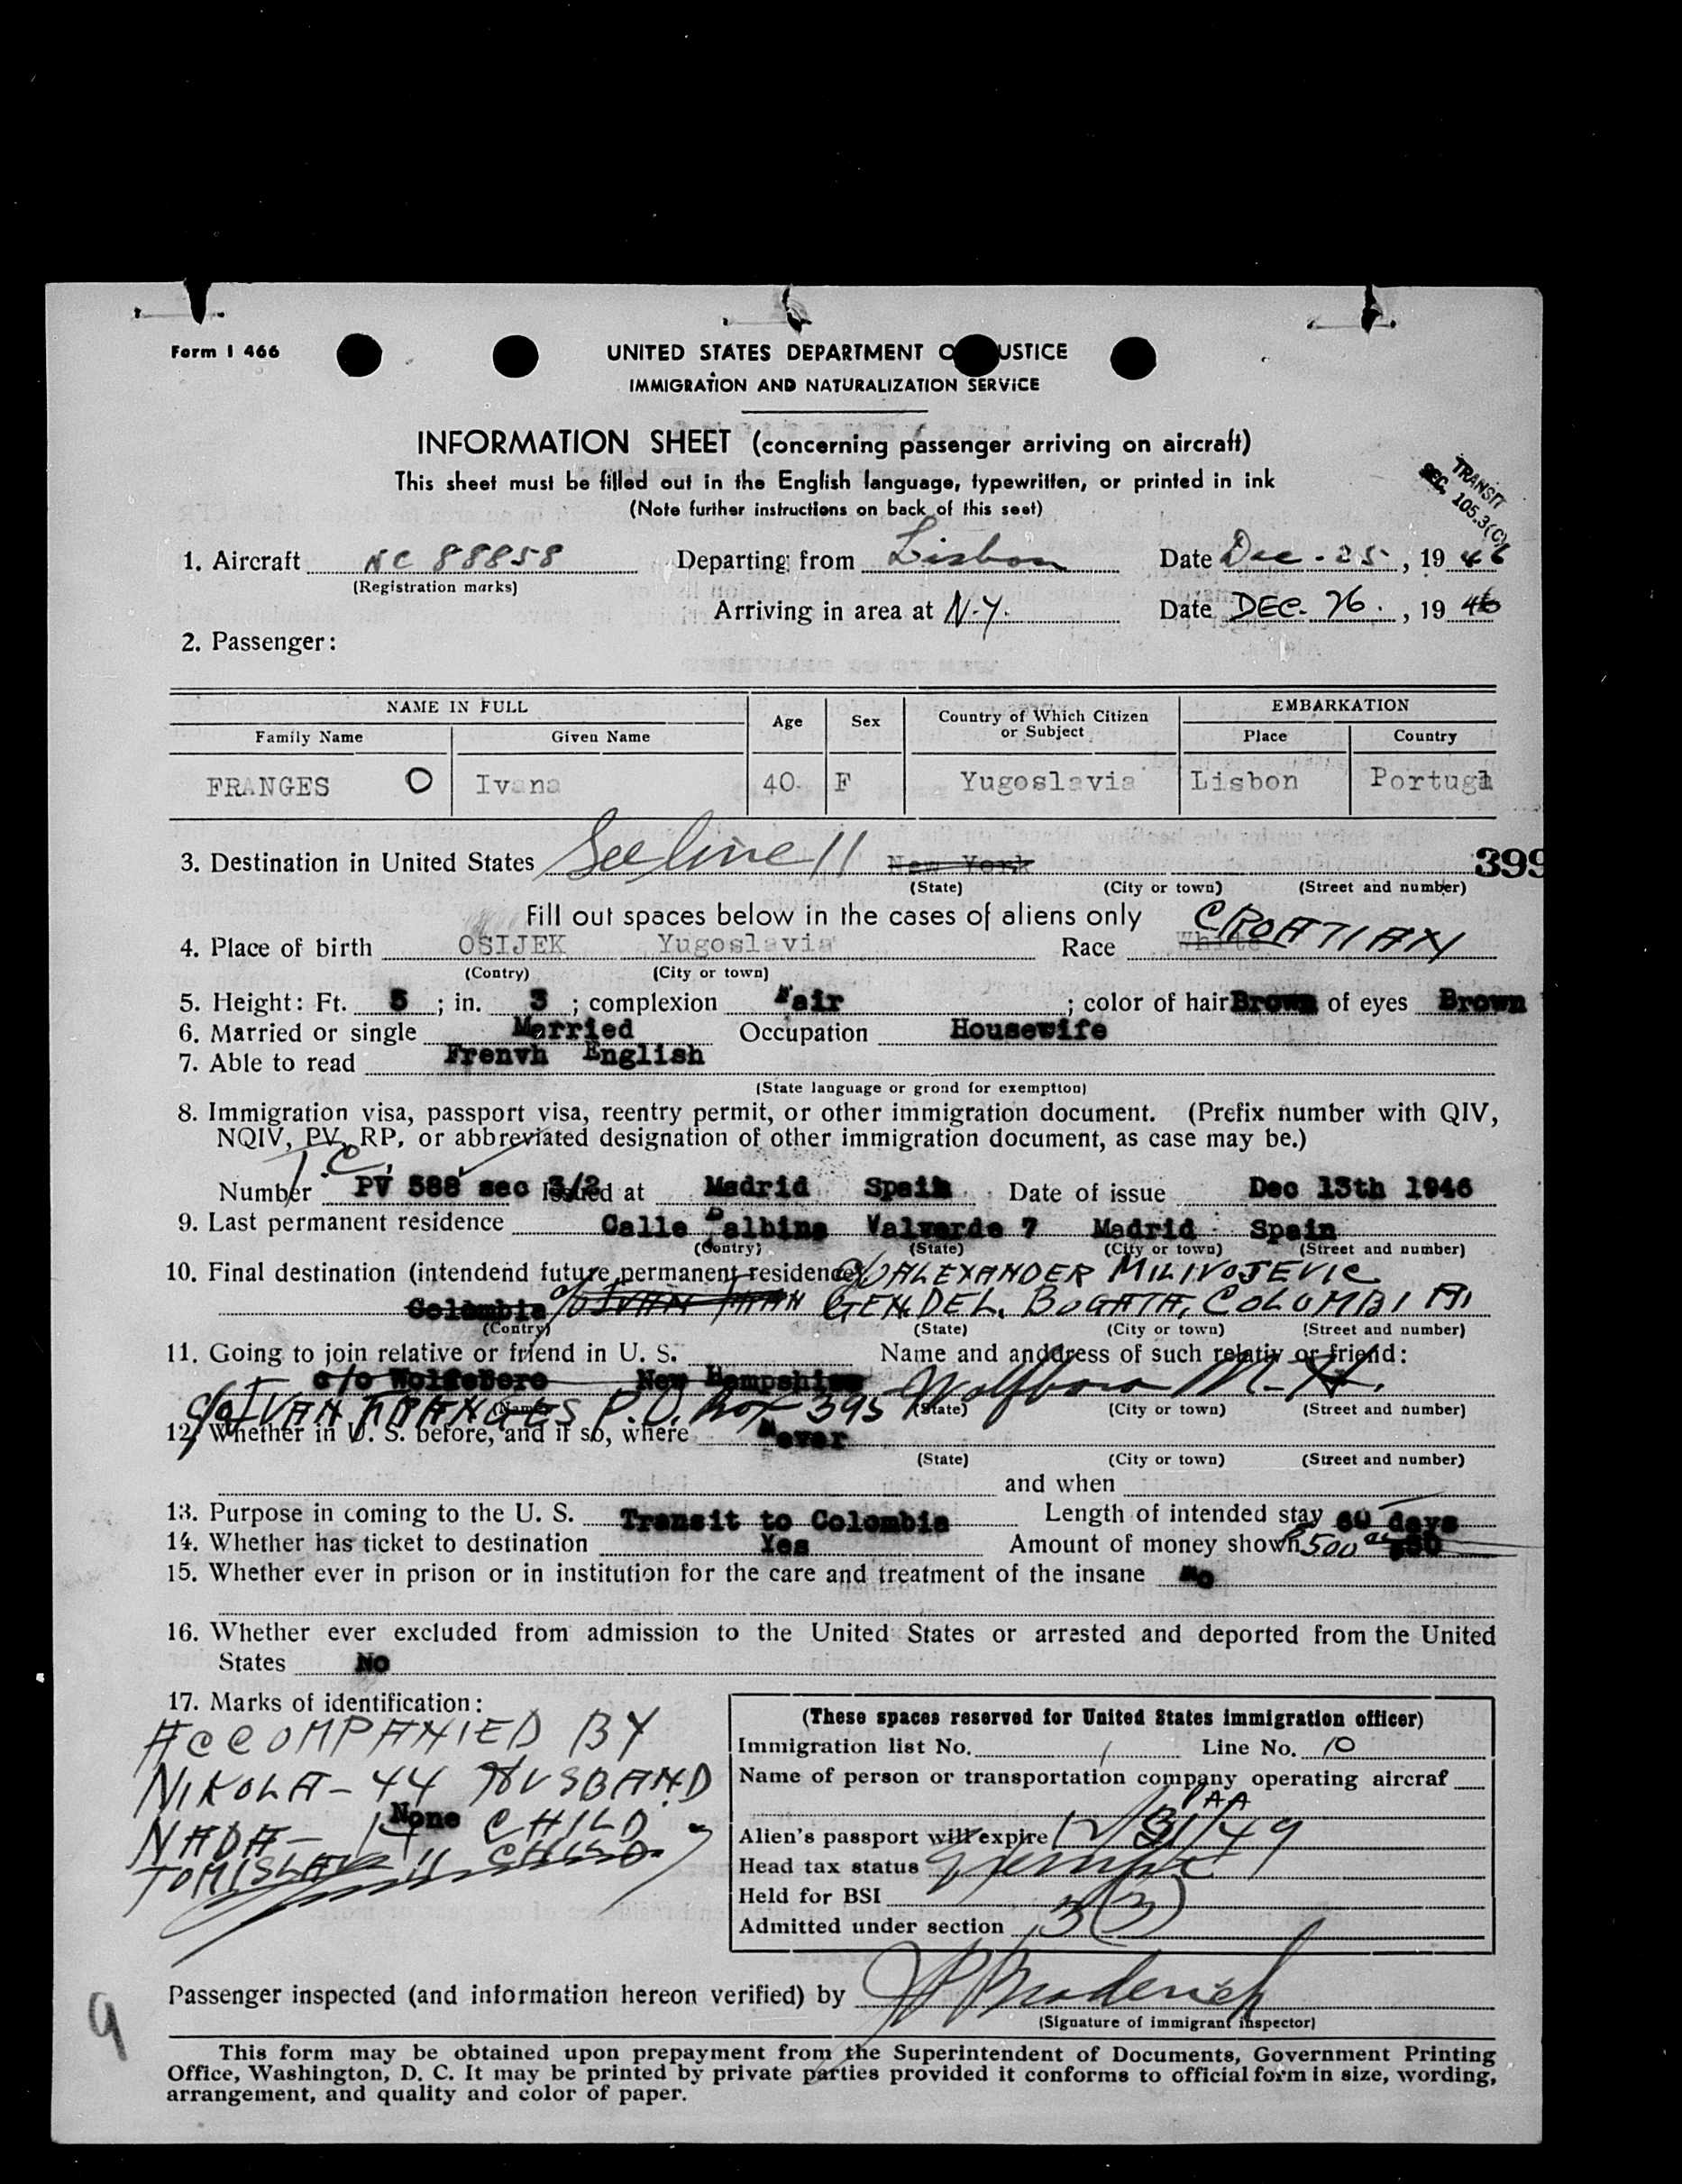 Form I 466
UNITED STATES DEPARTMENT O USTICE
IMMIGRATION AND NATURALIZATION SERVICE
INFORMATION SHEET (concerning passenger arriving on aircraft)
This sheet must be filled out in the English language, typewritten, or printed in ink
(Note further instructions on back of this seet)
TRANSIT
SEC. 105.3(C)
1. Aircraft NC 88858 Departing from Lisbon Date Dec - 25, 1946
(Registration marks)
Arriving in area at N.Y. Date DEC. 26., 1946
2. Passenger:
NAME IN FULL Age Sex Country of Which Citizen or Subject EMBARKATION
Family Name Given Name Place Country
FRANGES O Ivana 40. F Yugoslavia Lisbon Portugal
3. Destination in United States See line 11 New York
399
(State) (City or town) (Street and number)
Fill out spaces below in the cases of aliens only
4. Place of birth OSIJEK Yugoslavia Race White CROATIAN
(Contry) (City or town)
5. Height: Ft. 5 ; in. 3 ; complexion Fair ; color of hair Brown of eyes Brown
6. Married or single Married Occupation Housewife
7. Able to read Frenvh English
(State language or grond for exemption)
8. Immigration visa, passport visa, reentry permit, or other immigration document. (Prefix number with QIV,
NQIV, PV, RP, or abbreviated designation of other immigration document, as case may be.)
Number PV 588 sec 3/2 Issued at Madrid Spain Date of issue Dec 13th 1946
9. Last permanent residence Calle Balbina Valverde 7 Madrid Spain
(Contry) (State) (City or town) (Street and number)
10. Final destination (intendend future permanent residence) c/o ALEXANDER MILIVOJEVIC
Colombia c/o IVAN GEN. DEL. BOGATA, COLOMBIA
(Contry) (State) (City or town) (Street and number)
11. Going to join relative or friend in U. S. Name and anddress of such relativ or friend:
c/o Wolfeboro New Hampshire Wolfboro N.H.
c/o IVAN FRANGES P.O. Box 395
(Name) (State) (City or town) (Street and number)
12. Whether in U. S. before, and if so, where Never
(State) (City or town) (Street and number)
and when
13. Purpose in coming to the U. S. Transit to Colombia Length of intended stay 60 days
14. Whether has ticket to destination Yes Amount of money shown $500
15. Whether ever in prison or in institution for the care and treatment of the insane No
16. Whether ever excluded from admission to the United States or arrested and deported from the United
States No
17. Marks of identification:
ACCOMPANIED BY
NIKOLA - 44 HUSBAND
None
NADA - 14 CHILD
TOMISLAV 11 CHILD
(These spaces reserved for United States immigration officer)
Immigration list No. 1 Line No. 10
Name of person or transportation company operating aircraf
PAA
Alien's passport will expire 12/31/49
Head tax status Exempt
Held for BSI
Admitted under section 3(3)
Passenger inspected (and information hereon verified) by
(Signature of immigrant inspector)
9
This form may be obtained upon prepayment from the Superintendent of Documents, Government Printing
Office, Washington, D. C. It may be printed by private parties provided it conforms to official form in size, wording,
arrangement, and quality and color of paper.